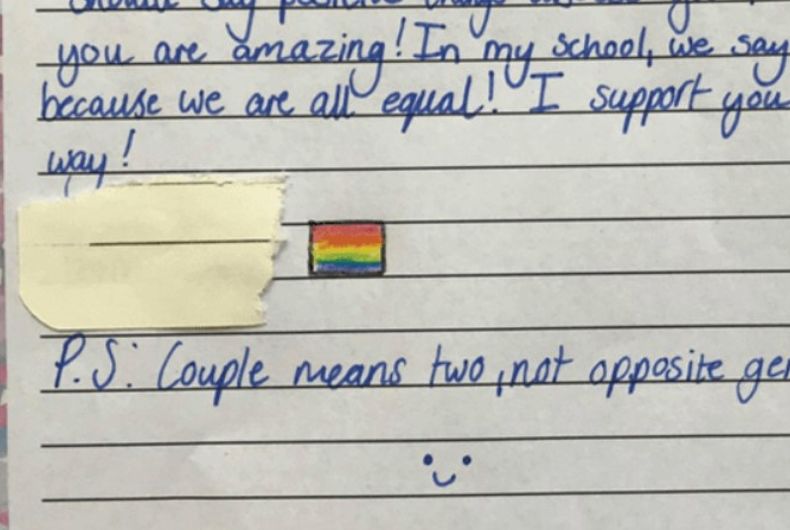 you are amazing! In my school, we say
because we are all equal! I support you
way!
P.S: Couple means two, not opposite